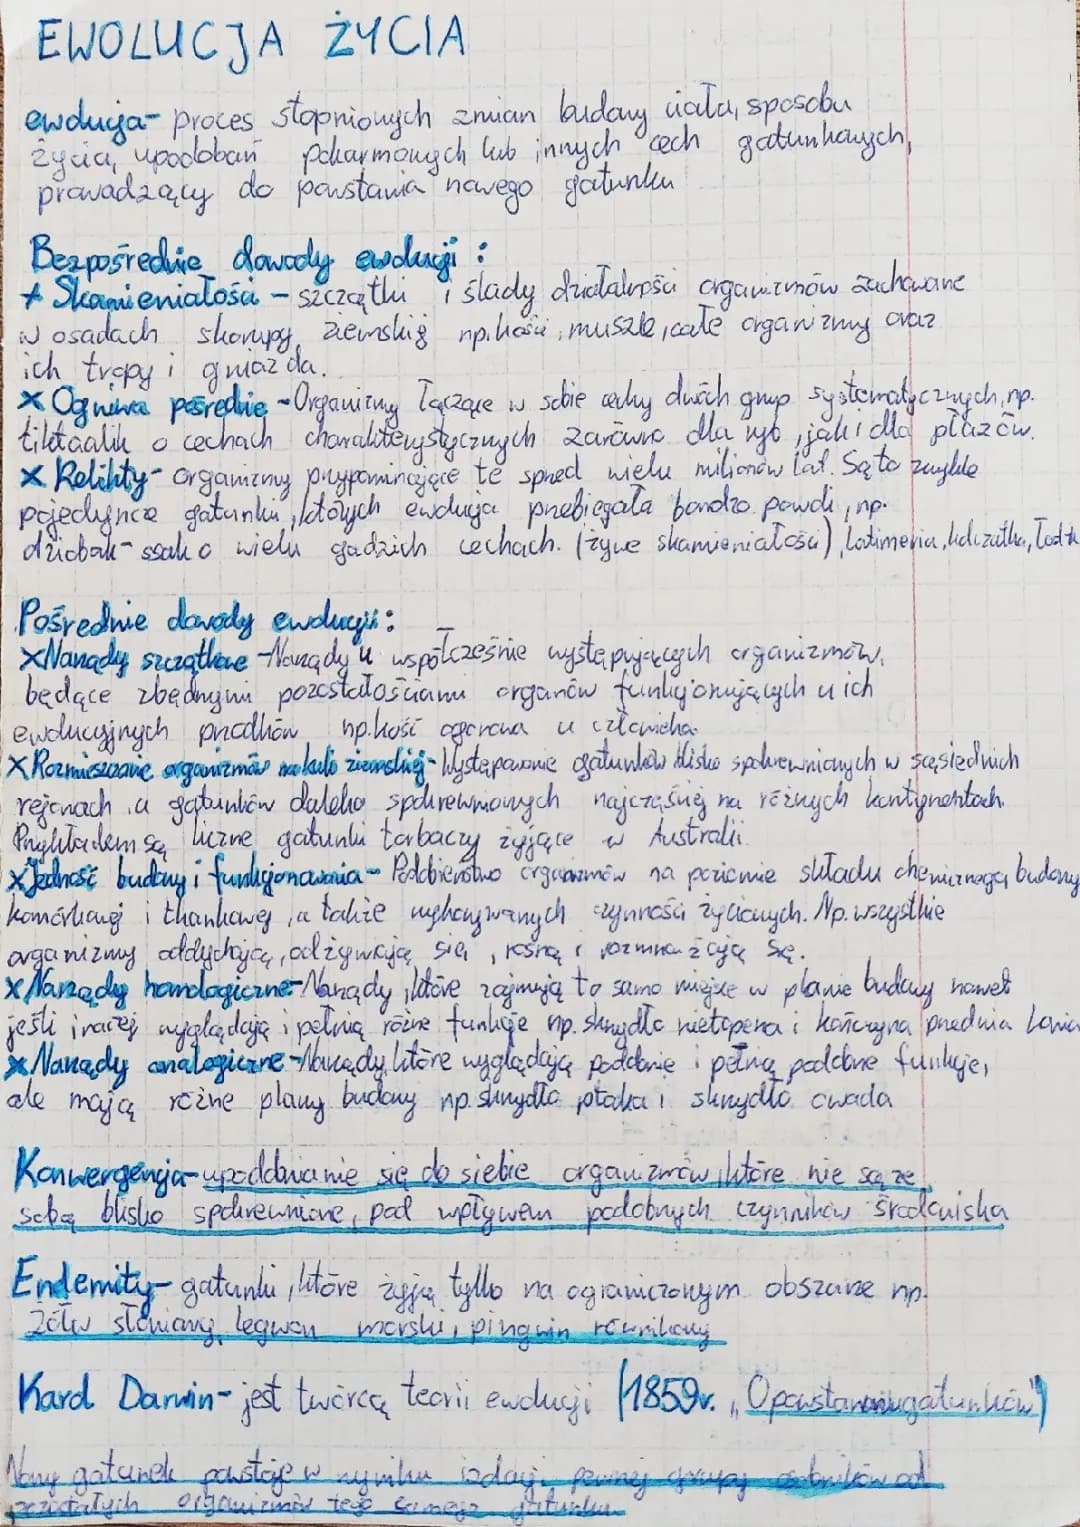 EWOLUCJA ŻYCIA
ewolucja - proces stopniowych zmian budowy ciała, sposobu
życia, upodobań pokarmowych lub innych cech gatunkowych,
prowadzący do powstania nowego gatunku
Bezpośrednie dowody ewolucji:
x Skamieniałości - szczątki i ślady działalności organizmów zachowane
w osadach skorupy ziemskiej np. kości, muszle, całe organizmy oraz
ich tropy i gniazda.
x Ogniwa pośrednie - Organizmy łączące w sobie cechy dwóch grup systematycznych, np.
tiktaalik o cechach charakterystycznych zarówno dla ryb, jak i dla płazów.
x Relikty - organizmy przypominające te sprzed wielu milionów lat. Są to zwykle
pojedyncze gatunki, których ewolucja przebiegała bardzo powoli, np.
dziobak - ssak o wielu gadzich cechach. (żywe skamieniałości), latimeria, kolczatka,
Pośrednie dowody ewolucji:
x Narządy szczątkowe - Narządy u współcześnie występujących organizmów,
będące zbędnymi pozostałościami organów funkcjonujących u ich
ewolucyjnych przodków np. kość ogonowa u człowieka
x Rozmieszczenie organizmów na kuli ziemskiej - Występowanie gatunków blisko spokrewnionych w sąsiednich
rejonach, a gatunków daleko spokrewnionych najczęściej na różnych kontynentach.
Przykładem są liczne gatunki torbaczy żyjące w Australii.
x Jedność budowy i funkcjonowania - Podobieństwo organizmów na poziomie składu chemicznego, budowy
komórkowej i tkankowej, a także wykonywanych czynności życiowych. Np. wszystkie
organizmy oddychają, odżywiają się, rosną i rozmnażają się.
x Narządy homologiczne - Narządy, które zajmują to samo miejsce w planie budowy nawet
jeśli inaczej wyglądają i pełnią różne funkcje np. skrzydło nietoperza i kończyna przednia konia
x Narządy analogiczne - Narządy, które wyglądają podobnie i pełnią podobne funkcje,
ale mają różne plany budowy np. skrzydło ptaka i skrzydło owada
Konwergencja - upodabnianie się do siebie organizmów, które nie są ze
sobą blisko spokrewnione, pod wpływem podobnych czynników środowiska
Endemity - gatunki, które żyją tylko na ograniczonym obszarze np.
żółw słoniowy, legwan morski, pingwin równikowy
Karol Darwin - jest twórcą teorii ewolucji (1859r. "O powstawaniu gatunków")
Nowy gatunek powstaje w wyniku izolacji pewnej grupy osobników od
pozostałych organizmów tego samego gatunku